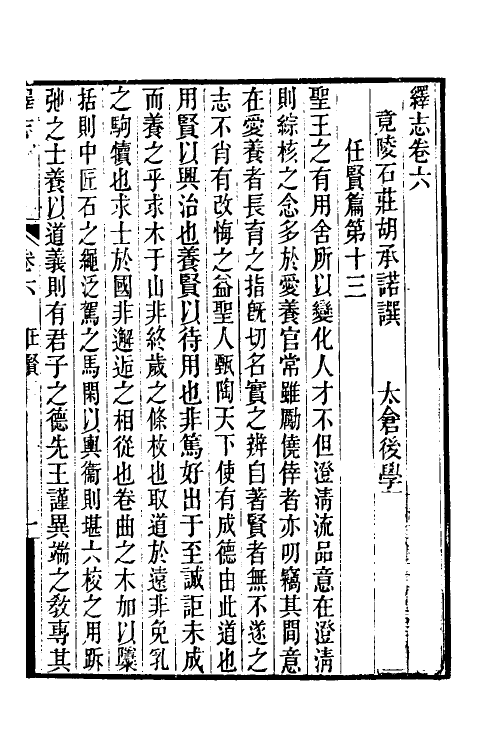 繹志卷六
竟陵石莊胡承諾譔　太倉後學
任賢篇第十三
聖王之有用舍所以變化人才不但澄清流品意在澄清
則綜核之念多於愛養官常雖勵僥倖者亦叨竊其間意
在愛養者長育之指旣切名實之辨自著賢者無不遂之
志不肖有改悔之益聖人甄陶天下使有成德由此道也
用賢以興治也養賢以待用也非篤好出于至誠詎未成
而養之乎求木于山非終歲之條枚也取道於遠非免乳
之駒犢也求士於國非邂逅之相從也卷曲之木加以檃
括則中匠石之繩泛駕之馬閑以輿衞則堪六校之用跅
弛之士養以道義則有君子之德先王謹異端之敎專其
卷六　任賢